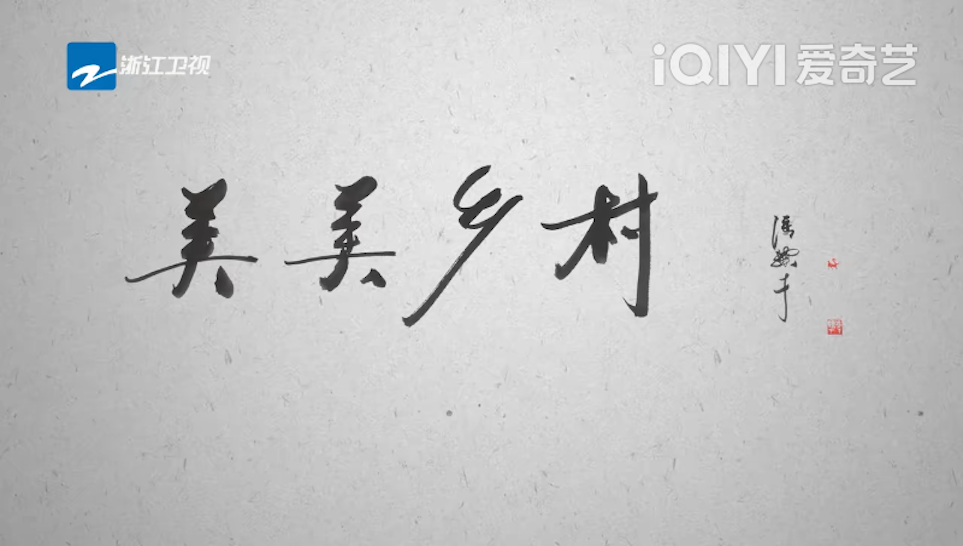 浙江卫视
iQIYI 爱奇艺
美美乡村